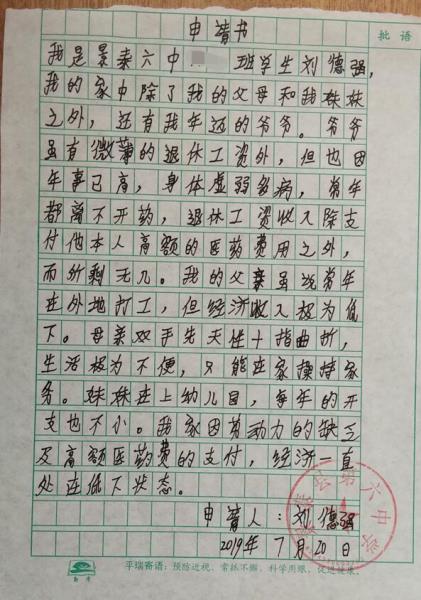 申请书
批语
我是景泰六中 班学生刘德强,
我的家中除了我的父母和我妹妹
之外，还有我年迈的爷爷。爷爷
虽有微薄的退休工资外，但也因
年事已高，身体虚弱多病，常年
都离不开药，退休工资收入除支
付他本人高额的医药费用之外，
而所剩无几。我的父亲虽说常年
在外地打工，但经济收入极为低
下。母亲双手先天性十指曲折，
生活极为不便，只能在家操持家
务。妹妹在上幼儿园，每年的开
支也不小。我家因劳动力的缺乏
及高额医药费的支付，经济一直
处在低下状态。
申请人：刘德强
2019年7月20日
第六中学
平瑞寄语：预防近视、常抓不懈、科学用眼、促进健康。